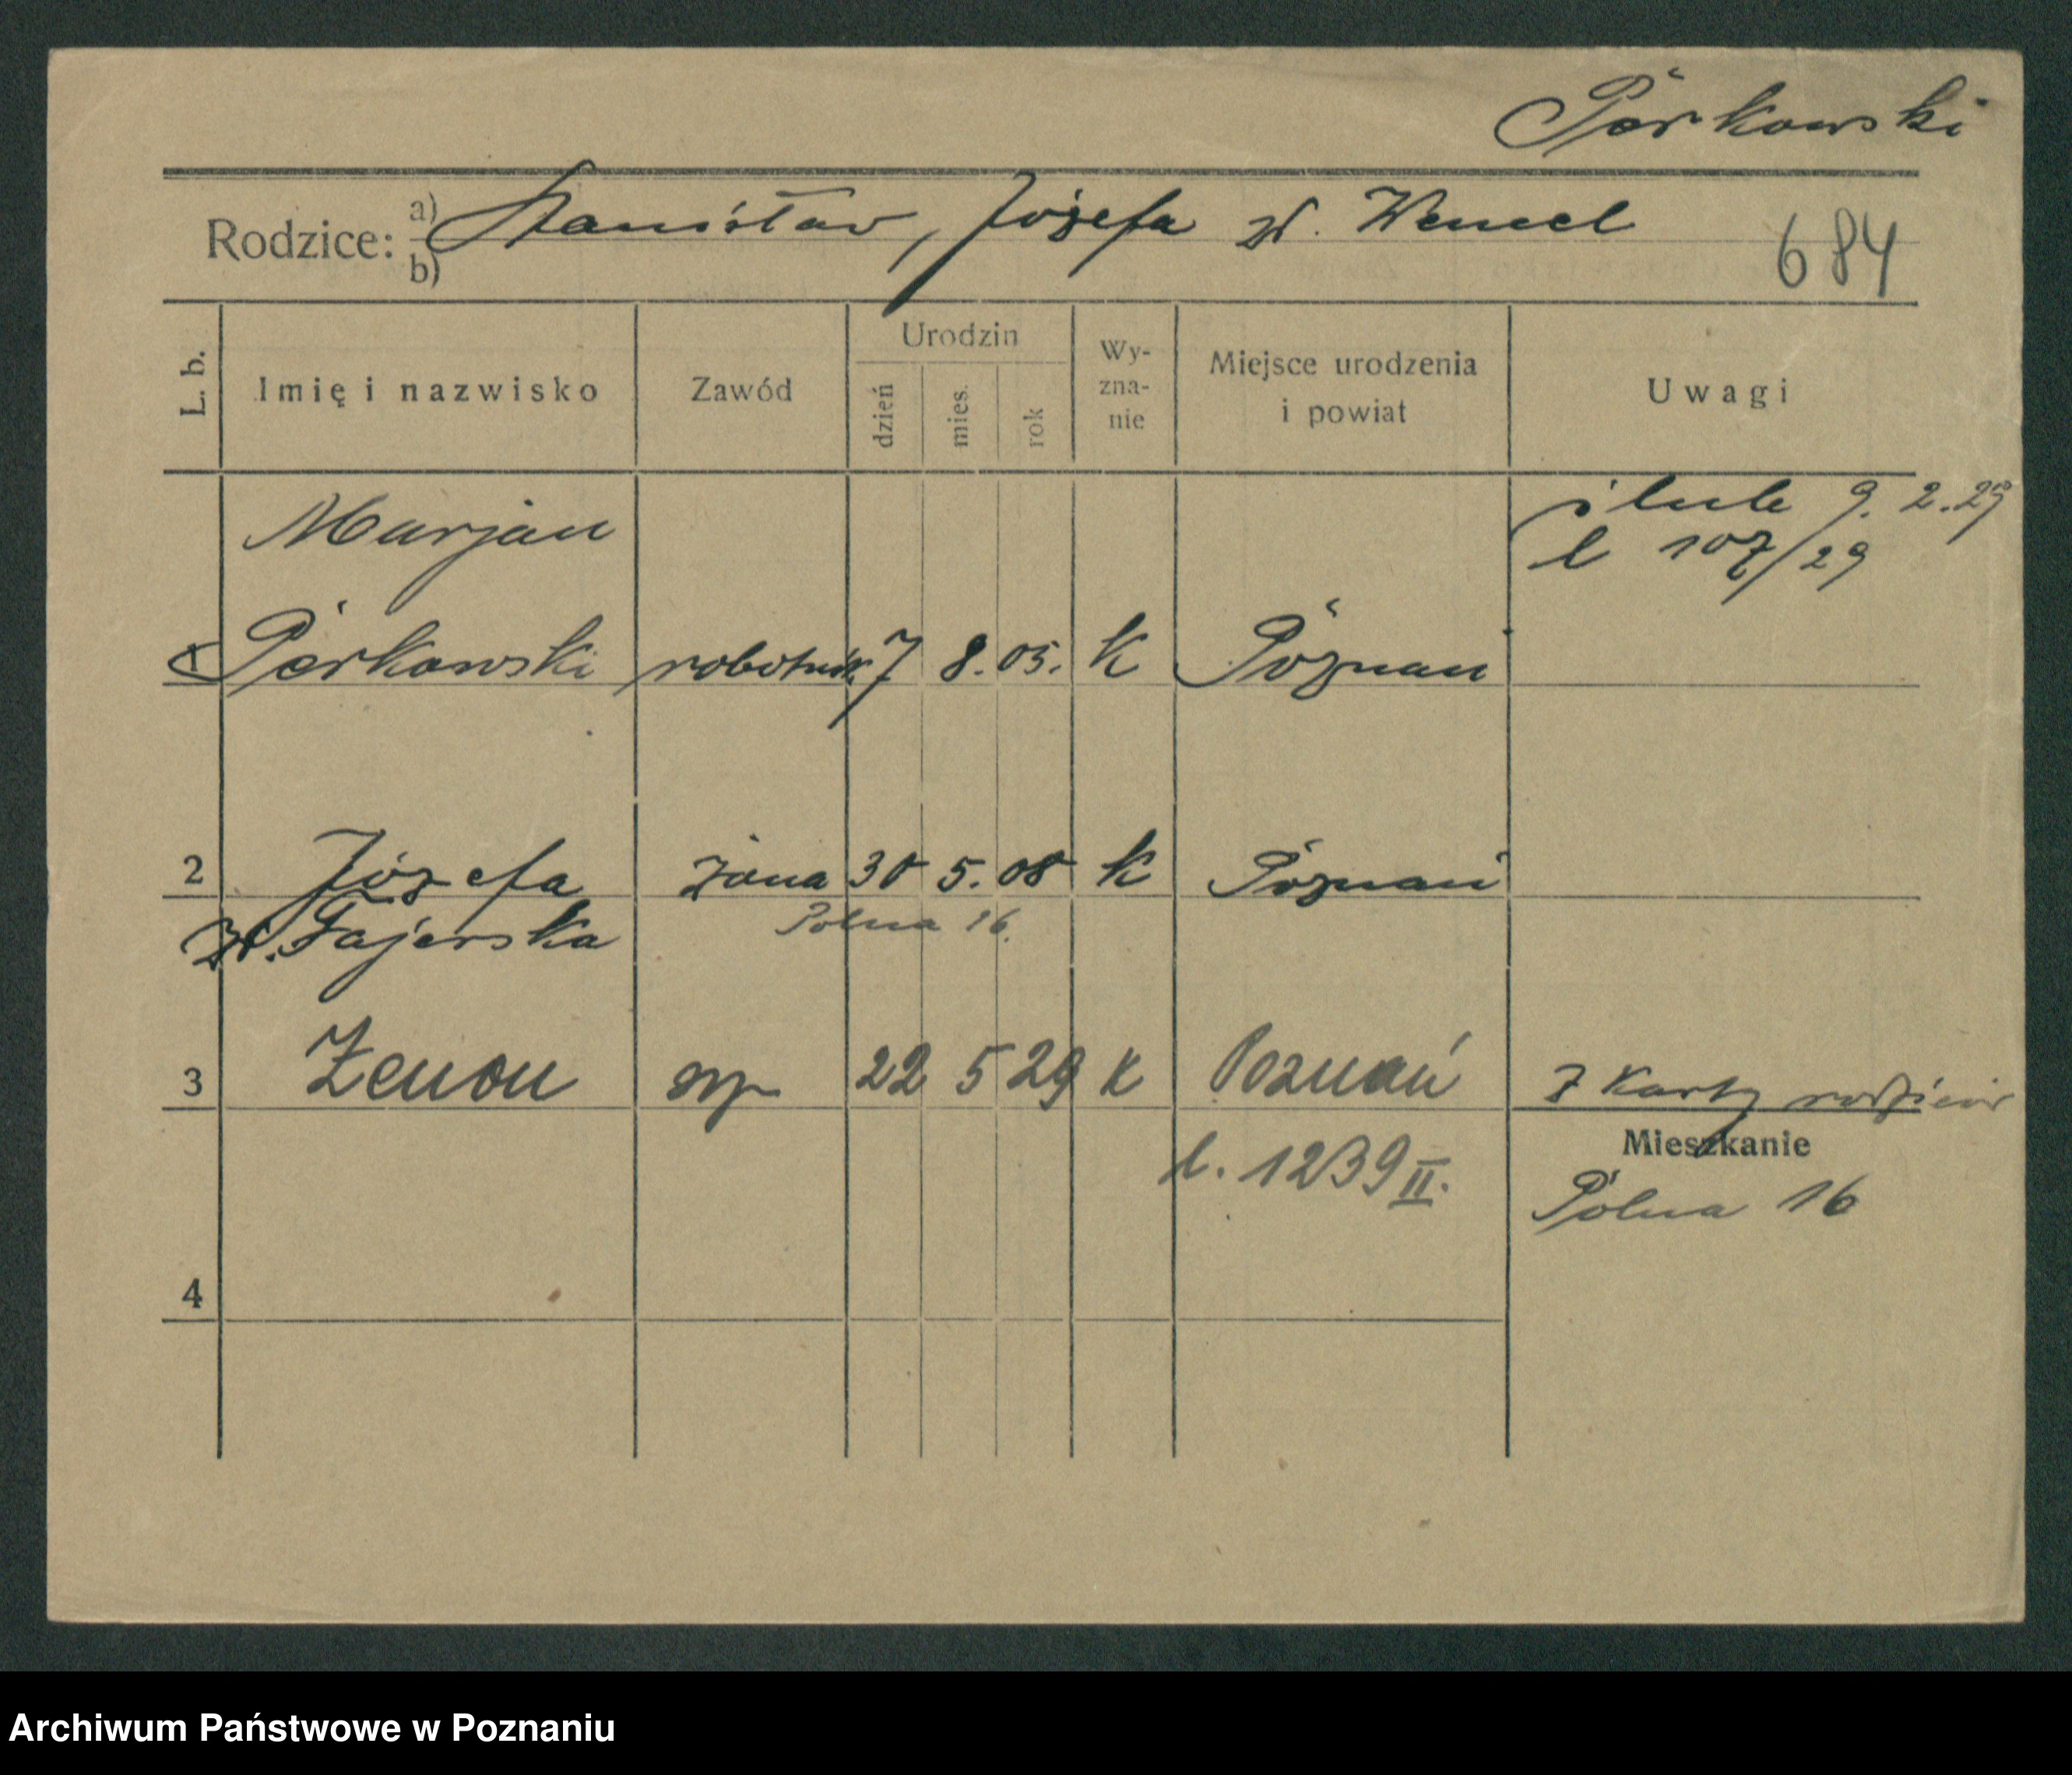 Pérkowski
Rodzice: a) Stanisław, Józefa zd. Wencel
b)
684
L. b.
Imię i nazwisko
Zawód
Urodzin
dzień
mies.
rok
Wy-
zna-
nie
Miejsce urodzenia
i powiat
Uwagi
Marjan
ślub 9. 2. 29
l 107/29
1 Perkowski robotnik 7 8. 05. k Poznań
2 Józefa żona 30 5. 08 k Poznań
Zd. Fajerska Polna 16.
3 Zenon syn 22 5 29 k Poznań Z Karty rodziców
l. 1239 II.
Mieszkanie
Polna 16
4
Archiwum Państwowe w Poznaniu